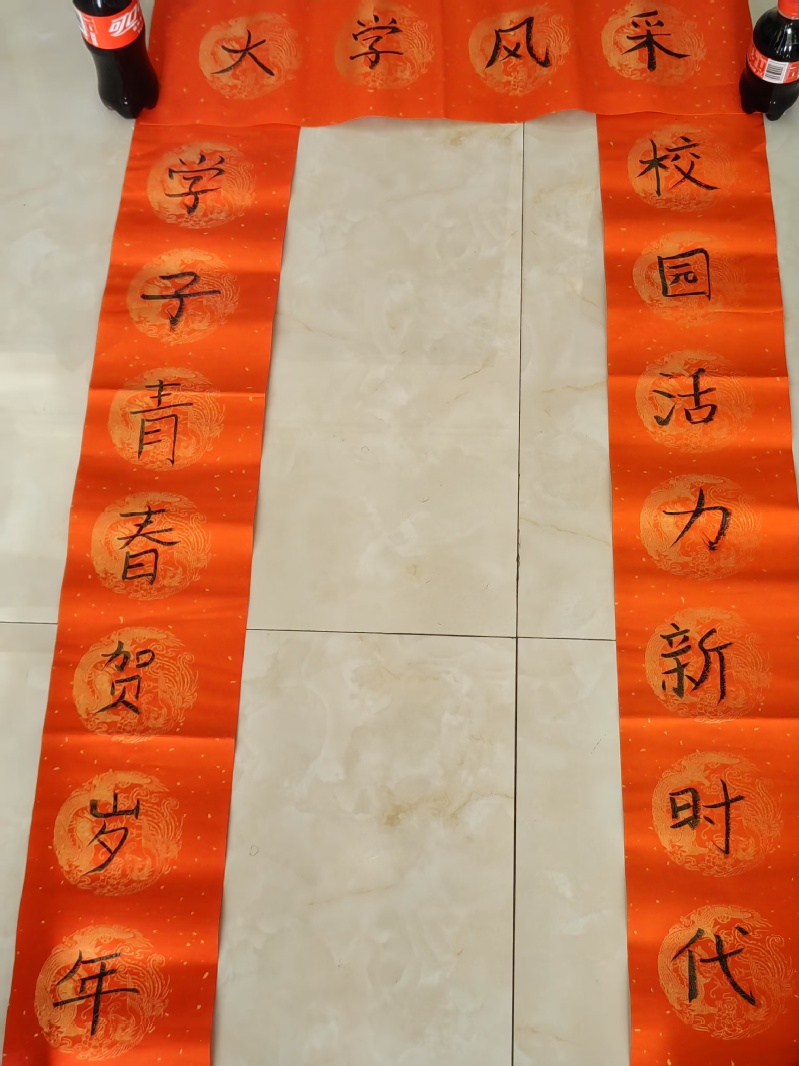 大学风采
校园活力新时代
学子青春贺岁年